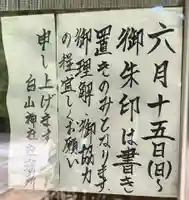 六月十五日(日)〜
御朱印は書き
置きのみとなります
御理解・御協力
の程宜しくお願い
申し上げます
白山神社